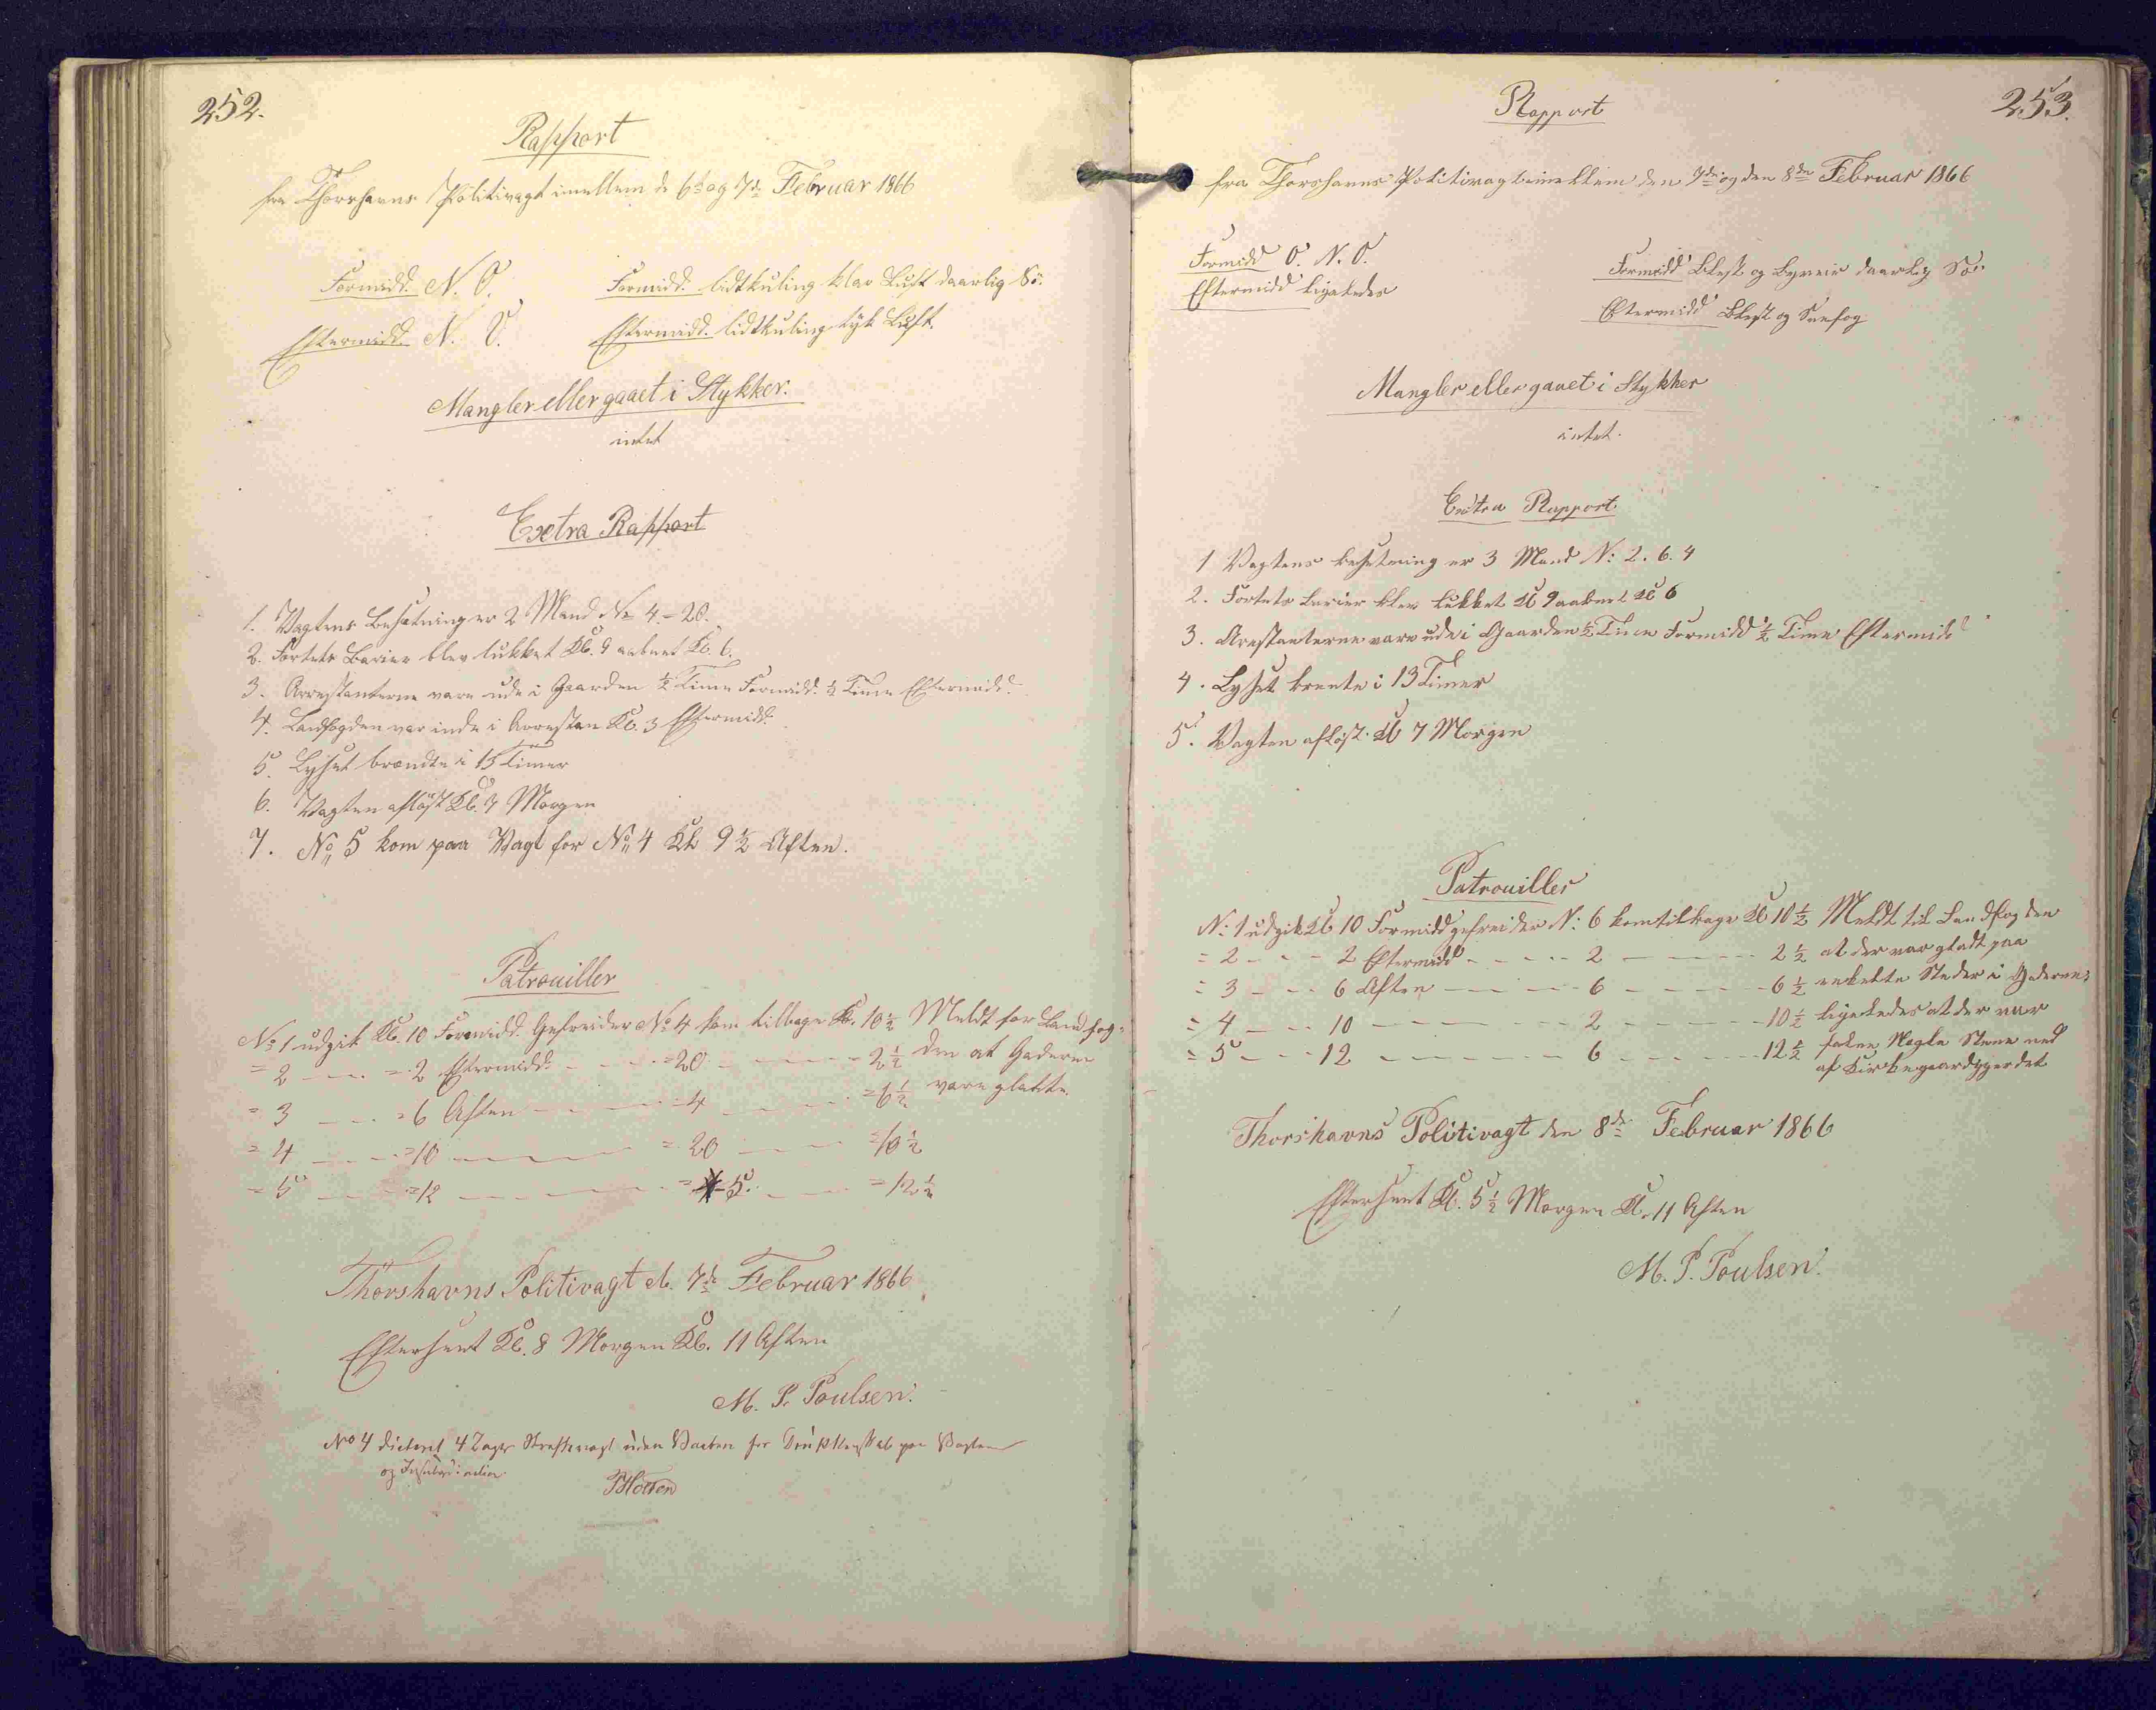 252.
Rapport
fra Thorshavns Politivagt imellem d. 6te og 7de Februar 1866
Formidd. N. O. Formidd. lidt kuling klar Luft daarlig Sö.
Eftermidd. N. O. Eftermidd. lidt kuling tyk Luft.
Mangler eller gaaet i Stykker.
intet
Exetra Rapport
1. Vagtens Besætning er 2 Mand No 4 - 20.
2. Fortets Barier blev lukket Kl. 9 aabnet Kl. 6.
3. Arrestanterne vare ude i Gaarden ½ Time Formidd. ½ Time Eftermidd.
4. Landfogden var inde i Arresten Kl. 3 Eftermidd.
5. Lyset brændte i 13 Timer
6. Vagten aflöst Kl. 7 Morgen
7. No 5 kom paa Vagt for No 4 Kl 9½ Aften.
Patrouiller
No 1 udgik Kl. 10 Formidd. Gefreider No 4 kom tilbage Kl. 10½ Meldt for Landfog=
= 2 — = 2 Eftermidd. — = 20 — = 2½ den at Gaderne
= 3 — = 6 Aften — = 4 — = 6½ vare glatte.
= 4 — = 10 — = 20 — = 10½
= 5 — = 12 — = 5. — = 12½
Thorshavns Politivagt d. 7de Februar 1866
Efterseet Kl. 8 Morgen Kl. 11 Aften
M. P. Poulsen.
No 4 dicteret 4 Dages Straffevagt uden Vaaben for Drukkenskab paa Vagten
253.
Rapport
fra Thorshavns Politivagt imellem den 7de og den 8de Februar 1866
Formidd O. N. O. Formidd Blæst og Byveir daarlig Sø.
Eftermidd ligeledes Eftermidd Blæst og Snefog
Mangler eller gaaet i Stykker
intet.
Extra Rapport
1 Vagtens besetning er 3 Mand N: 2. 6. 4
2. Fortets barier blev lukket Kl 9 aabnet Kl 6
3. Arestanterne vare ude i Gaarden ½ Time Formidd ½ Time Eftermidd
4. Lyset brente i 13 Timer
5. Vagten afløst Kl 7 Morgen
Patrouiller
N: 1 udgik Kl 10 Formidd gefreider N: 6 kom tilbage Kl 10½ Meldt til Landfogden
= 2 - - - 2 Eftermidd - - - - 2 - - - 2½ at der var gladt paa
= 3 - - - 6 Aften - - - 6 - - - 6½ enkelte Steder i Gaderne,
= 4 - - - 10 - - - 2 - - - 10½ ligeledes at der var
= 5 - - - 12 - - - 6 - - - 12½ falen Nogle Stene ned
af Kirkegaardsgerdet
Thorshavns Politivagt den 8de Februar 1866
Efterseet Kl. 5½ Morgen Kl. 11 Aften
M. P. Poulsen.